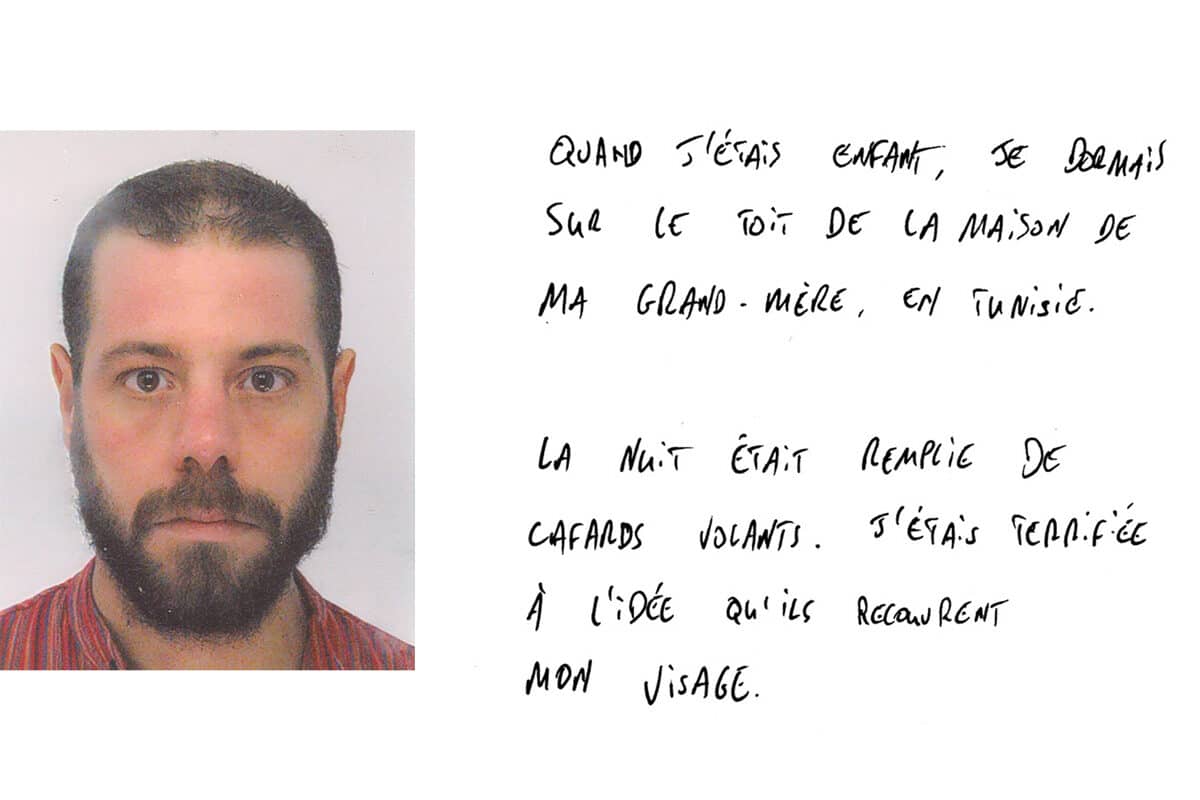 QUAND J'ÉTAIS ENFANT, JE DORMAIS
SUR LE TOIT DE LA MAISON DE
MA GRAND-MÈRE, EN TUNISIE.
LA NUIT ÉTAIT REMPLIE DE
CAFARDS VOLANTS. J'ÉTAIS TERRIFIÉE
À L'IDÉE QU'ILS RECOUVRENT
MON VISAGE.